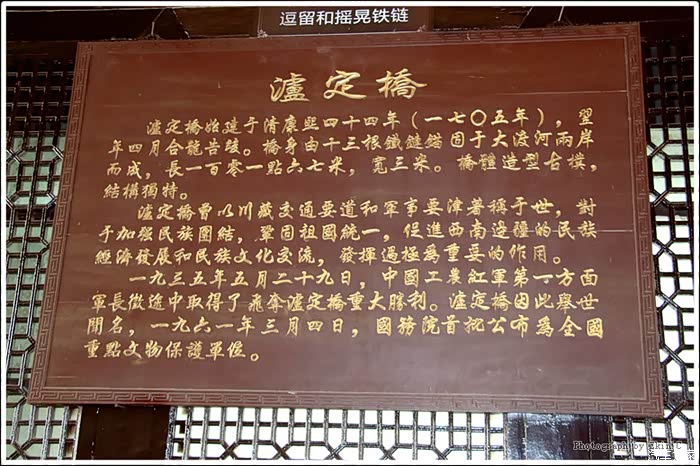 逗留和摇晃铁链
瀘定橋
瀘定橋始建于清康熙四十四年（一七〇五年），翌
年四月合龍告竣。橋身由十三根鐵鏈錨固于大渡河兩岸
而成，長一百零一點六七米，寬三米。橋體造型古樸，
結構獨特。
瀘定橋曾以川藏交通要道和軍事要津著稱于世，對
于加强民族團結，鞏固祖國統一，促進西南邊疆的民族
經濟發展和民族文化交流，發揮過極為重要的作用。
一九三五年五月二十九日，中國工農紅軍第一方面
軍長徵途中取得了飛奪瀘定橋重大勝利。瀘定橋因此舉世
聞名，一九六一年三月四日，國務院首批公布為全國
重點文物保護單位。
Photography by